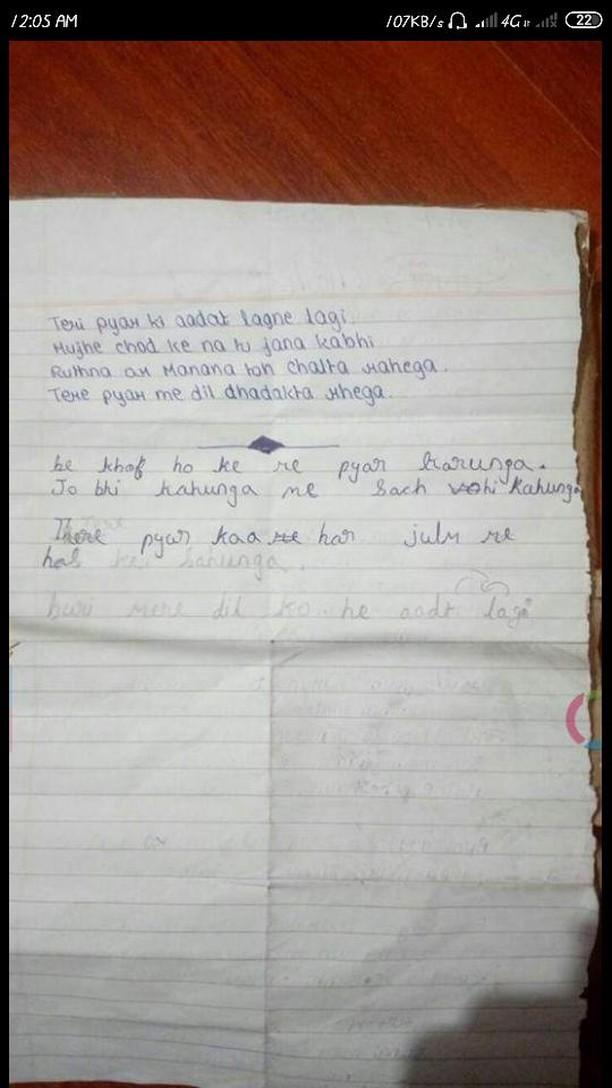 12:05 AM 107KB/s 4G 22
Teri pyar ki aadat lagne lagi
Mujhe chod ke na tu jana kabhi
Ruthna ar Manana toh chalta rahega.
Tere pyar me dil dhadakta rhega.
be khof ho ke me pyar karunga.
Jo bhi kahunga me Sach vohi kahunga
pyar kaa har julm me
has kei Sahunga.
buri mere dil ko he aadt lagi